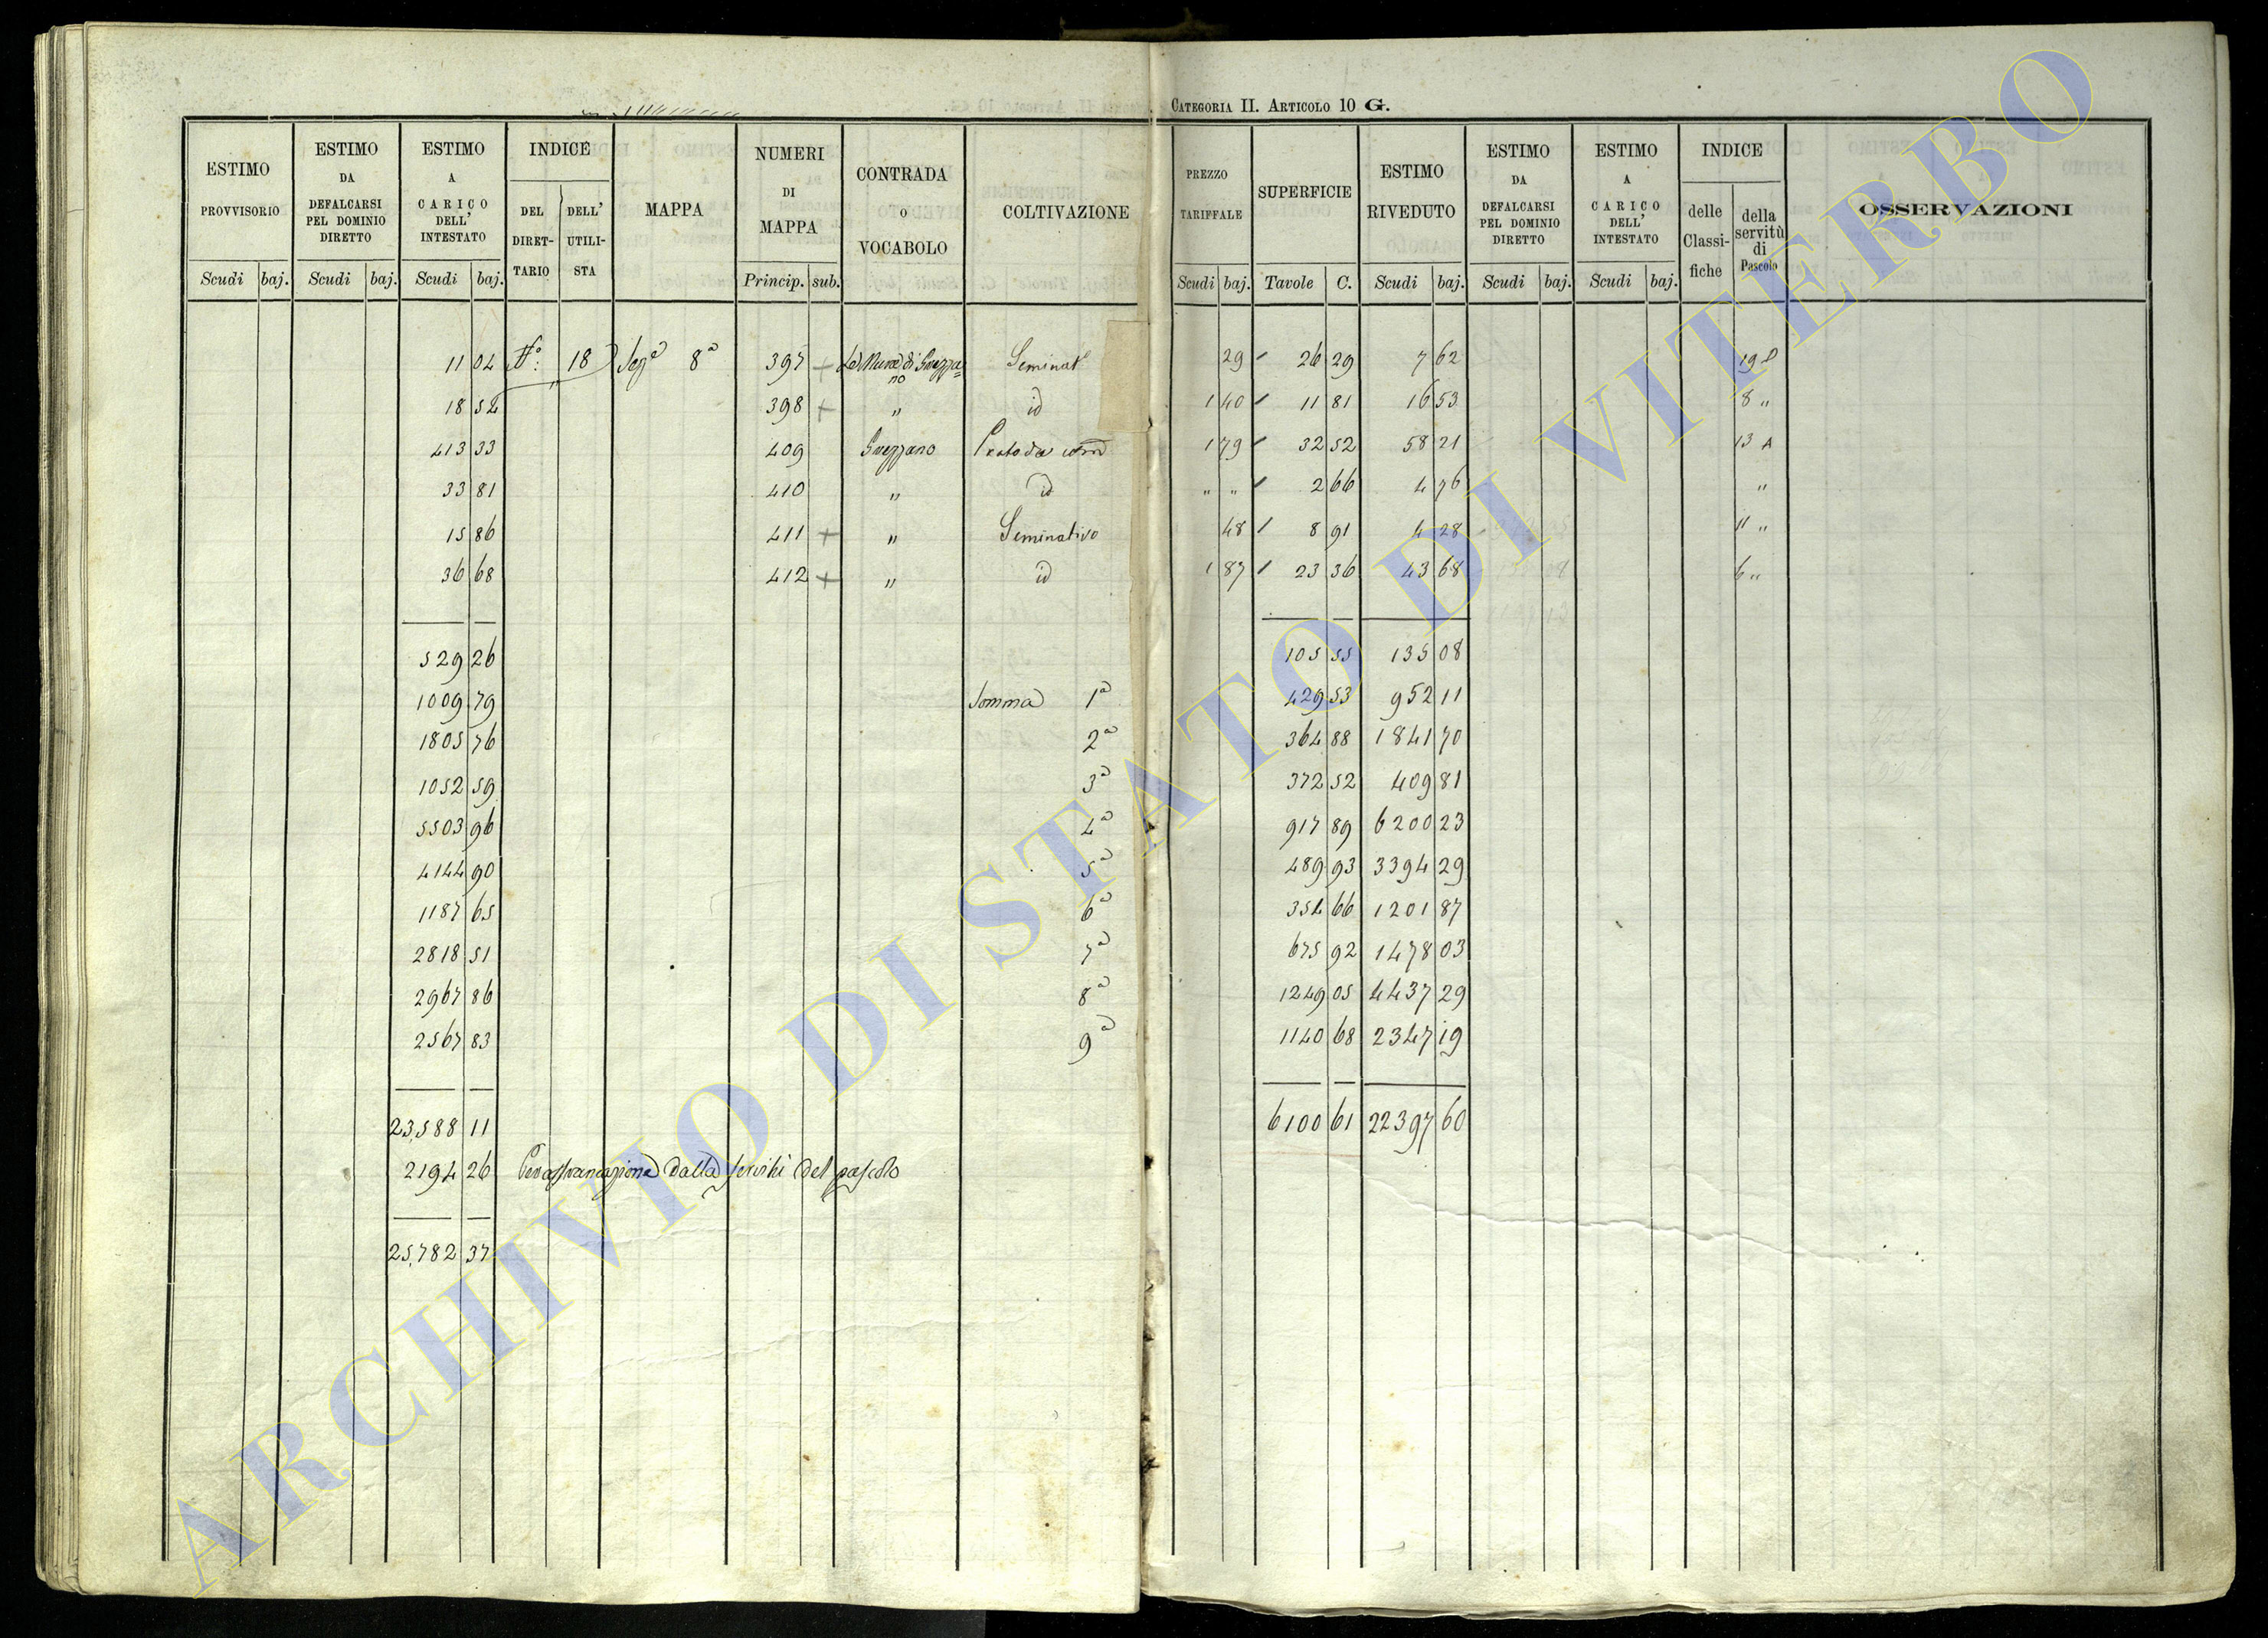 CATEGORIA II. ARTICOLO 10 G.
ESTIMO PROVVISORIO Scudi baj.
ESTIMO DA DEFALCARSI PEL DOMINIO DIRETTO Scudi baj.
ESTIMO A CARICO DELL' INTESTATO Scudi baj.
INDICE DEL DIRET- TARIO DELL' UTILI- STA
MAPPA
NUMERI DI MAPPA Princip. sub.
CONTRADA O VOCABOLO
COLTIVAZIONE
PREZZO TARIFFALE Scudi baj.
SUPERFICIE Tavole C.
ESTIMO RIVEDUTO Scudi baj.
ESTIMO DA DEFALCARSI PEL DOMINIO DIRETTO Scudi baj.
ESTIMO A CARICO DELL' INTESTATO Scudi baj.
INDICE delle Classi- fiche della servitù di Pascolo
OSSERVAZIONI
11 04 18 Seg.a 8a 397 + Seminat.o 29 26 29 7 62 19
18 54 398 + " id 1 40 11 81 16 53 8 "
413 33 409 Grezzano Prato da 1 79 32 52 58 21 13 A
33 81 410 " id " " 2 66 4 76 "
15 86 411 + " Seminativo 48 8 91 4 28 11 "
36 68 412 + " id 1 87 23 36 43 68 6 "
529 26 105 55 135 08
1009 79 Somma 1a 429 53 952 11
1805 76 2a 364 88 1841 70
1052 59 3a 372 52 409 81
5503 96 4a 917 89 6200 23
4144 90 5a 489 93 3394 29
1187 65 6a 354 66 1201 87
2818 51 7a 675 92 1478 03
2967 86 8a 1249 05 4437 29
2567 83 9a 1140 68 2347 19
23,588 11 6100 61 22397 60
2194 26 Per affrancazione dalla servitù del pascolo
25,782 37
ARCHIVIO DI STATO DI VITERBO